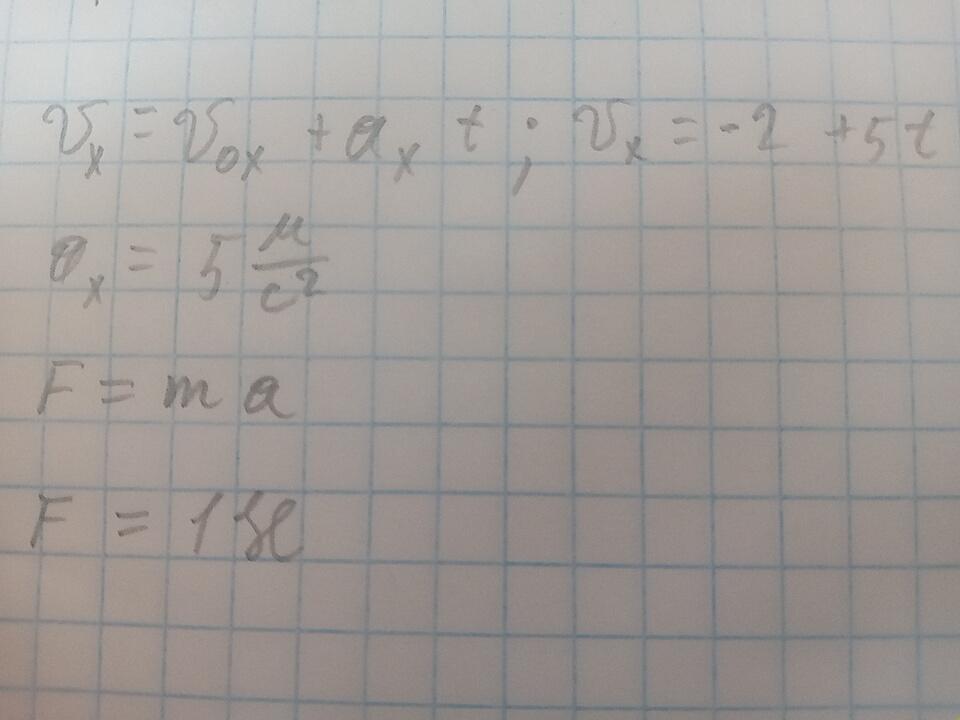 υₓ = υ₀ₓ + aₓ t ; υₓ = -2 + 5t
aₓ = 5 м/с²
F = m a
F = 1 Н